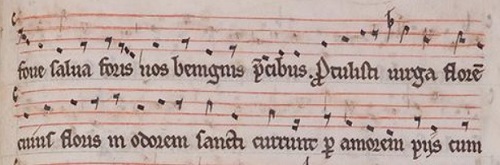 foue salua foris nos benignis p̃cibus. Ꝓtulisti uirga florẽ
cuius floris in odorem sancti currunt ꝑ amorem pijs cum